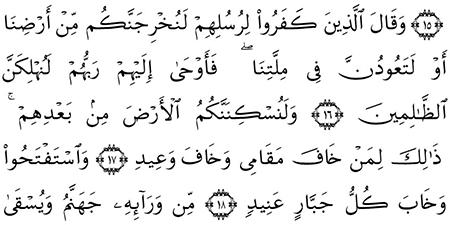 ﴿١٥﴾ وَقَالَ ٱلَّذِينَ كَفَرُوا۟ لِرُسُلِهِمْ لَنُخْرِجَنَّكُم مِّنْ أَرْضِنَا
أَوْ لَتَعُودُنَّ فِى مِلَّتِنَا ۖ فَأَوْحَىٰ إِلَيْهِمْ رَبُّهُمْ لَنُهْلِكَنَّ
ٱلظَّـٰلِمِينَ ﴿١٦﴾ وَلَنُسْكِنَنَّكُمُ ٱلْأَرْضَ مِنۢ بَعْدِهِمْ ۚ
ذَٰلِكَ لِمَنْ خَافَ مَقَامِى وَخَافَ وَعِيدِ ﴿١٧﴾ وَٱسْتَفْتَحُوا۟
وَخَابَ كُلُّ جَبَّارٍ عَنِيدٍ ﴿١٨﴾ مِّن وَرَآئِهِۦ جَهَنَّمُ وَيُسْقَىٰ